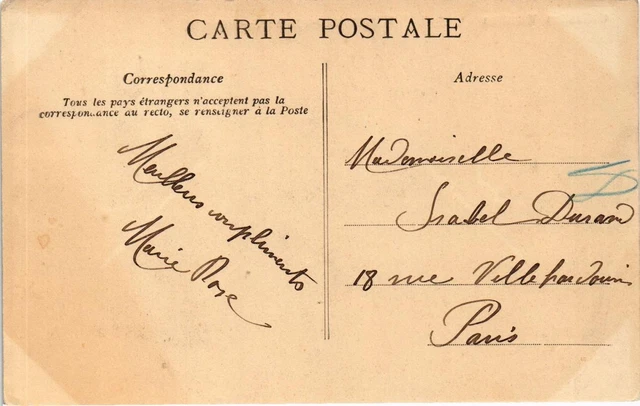 CARTE POSTALE
Correspondance
Tous les pays étrangers n'acceptent pas la
correspondance au recto, se renseigner à la Poste
Meilleurs compliments
Marie Rose
Adresse
Mademoiselle
Isabel Durand
18 rue Villehardouin
Paris